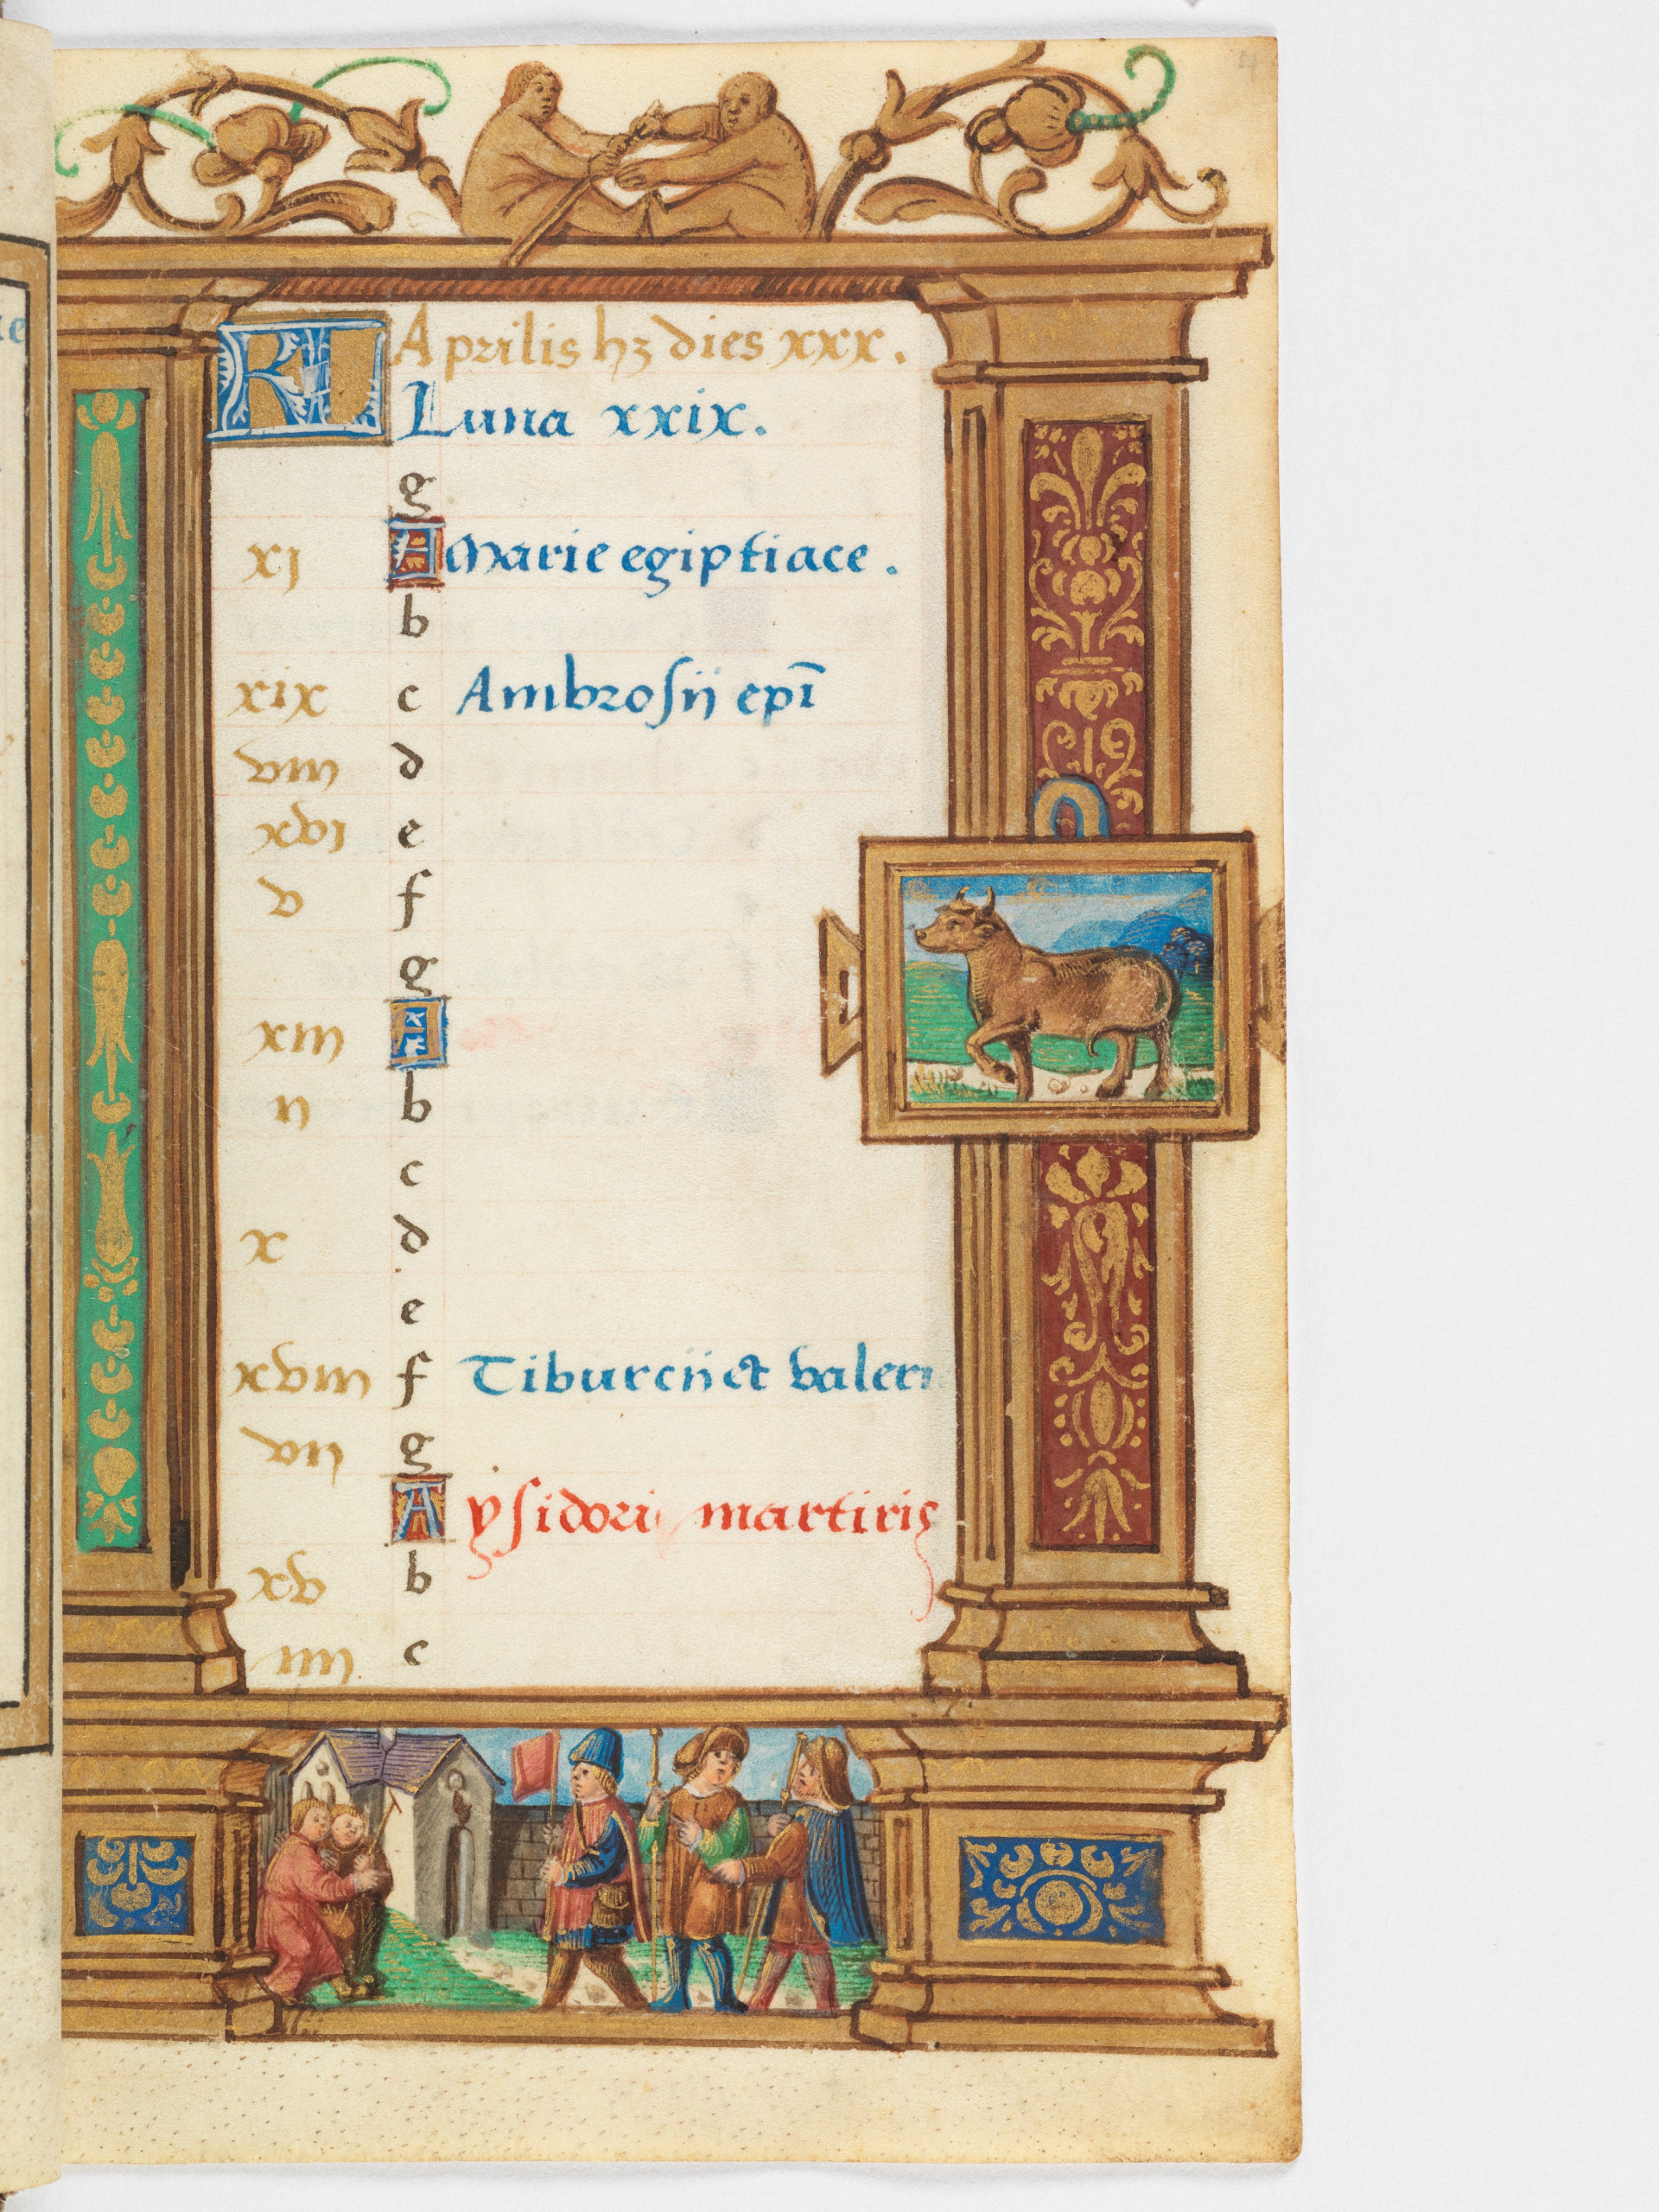 KL Aprilis hȝ dies xxx.
Luna xxix.
g
xj A Marie egiptiace.
b
xix c Ambrosij ep̄i
viii d
xvj e
v f
g
xiii A
ii b
c
x d
e
xviii f Tiburcij et valeri
vij g
A ysidori martiris
xv b
iiii c
4